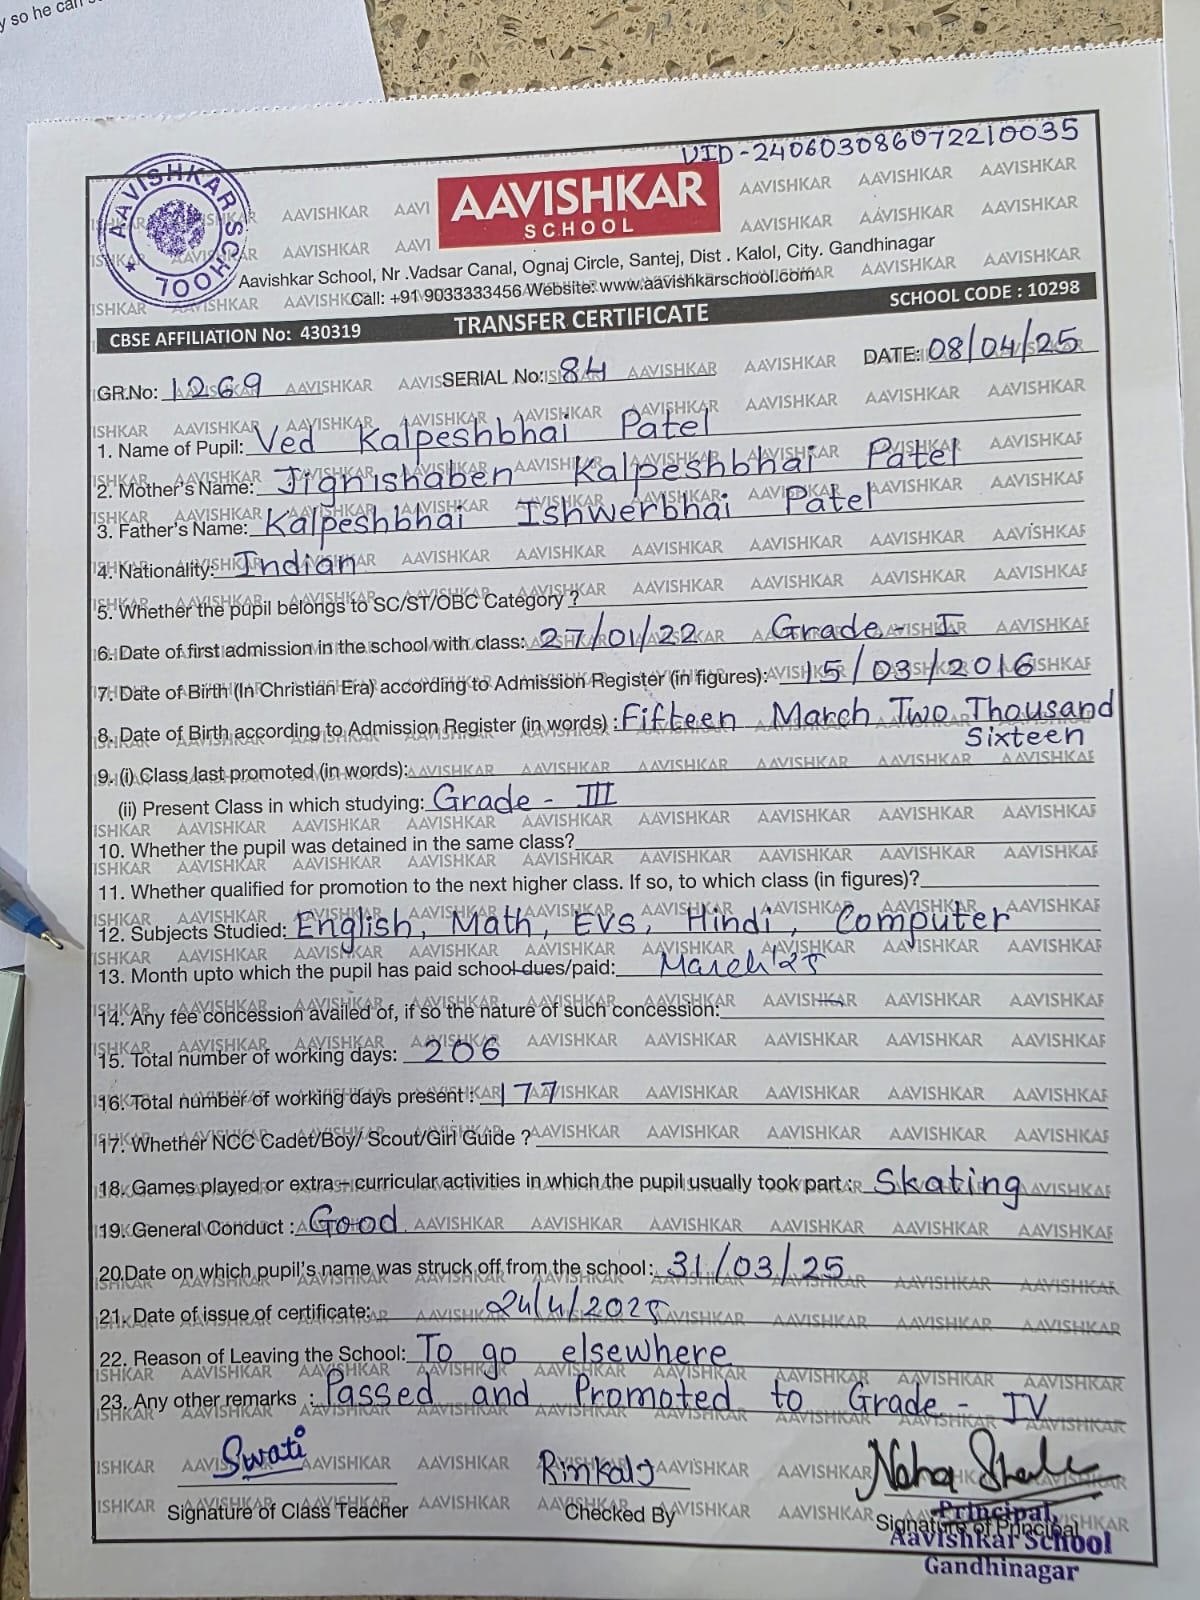 y so he can
UID-240603086072210035
AAVISHKAR SCHOOL
AAVISHKAR
SCHOOL
Aavishkar School, Nr .Vadsar Canal, Ognaj Circle, Santej, Dist . Kalol, City. Gandhinagar
Call: +91 9033333456 Website: www.aavishkarschool.com
CBSE AFFILIATION No: 430319 TRANSFER CERTIFICATE SCHOOL CODE : 10298
GR.No: 1269 SERIAL No: 84 DATE: 08/04/25
1. Name of Pupil: Ved Kalpeshbhai Patel
2. Mother's Name: Jignishaben Kalpeshbhai Patel
3. Father's Name: Kalpeshbhai Ishwerbhai Patel
4. Nationality: Indian
5. Whether the pupil belongs to SC/ST/OBC Category ?
6. Date of first admission in the school with class: 27/01/22 Grade - I
7. Date of Birth (In Christian Era) according to Admission Register (in figures): 15/03/2016
8. Date of Birth according to Admission Register (in words) : Fifteen March Two Thousand
Sixteen
9. (i) Class last promoted (in words):
(ii) Present Class in which studying: Grade - III
10. Whether the pupil was detained in the same class?
11. Whether qualified for promotion to the next higher class. If so, to which class (in figures)?
12. Subjects Studied: English, Math, EVS, Hindi, Computer
13. Month upto which the pupil has paid school dues/paid: March'25
14. Any fee concession availed of, if so the nature of such concession:
15. Total number of working days: 206
16. Total number of working days present : 177
17. Whether NCC Cadet/Boy/ Scout/Girl Guide ?
18. Games played or extra – curricular activities in which the pupil usually took part : Skating
19. General Conduct : Good
20.Date on which pupil's name was struck off from the school: 31/03/25
21. Date of issue of certificate: 24/4/2025
22. Reason of Leaving the School: To go elsewhere
23. Any other remarks : Passed and Promoted to Grade - IV
Swati Rinkal Neha
Signature of Class Teacher Checked By Signature of Principal
Principal,
Aavishkar School
Gandhinagar